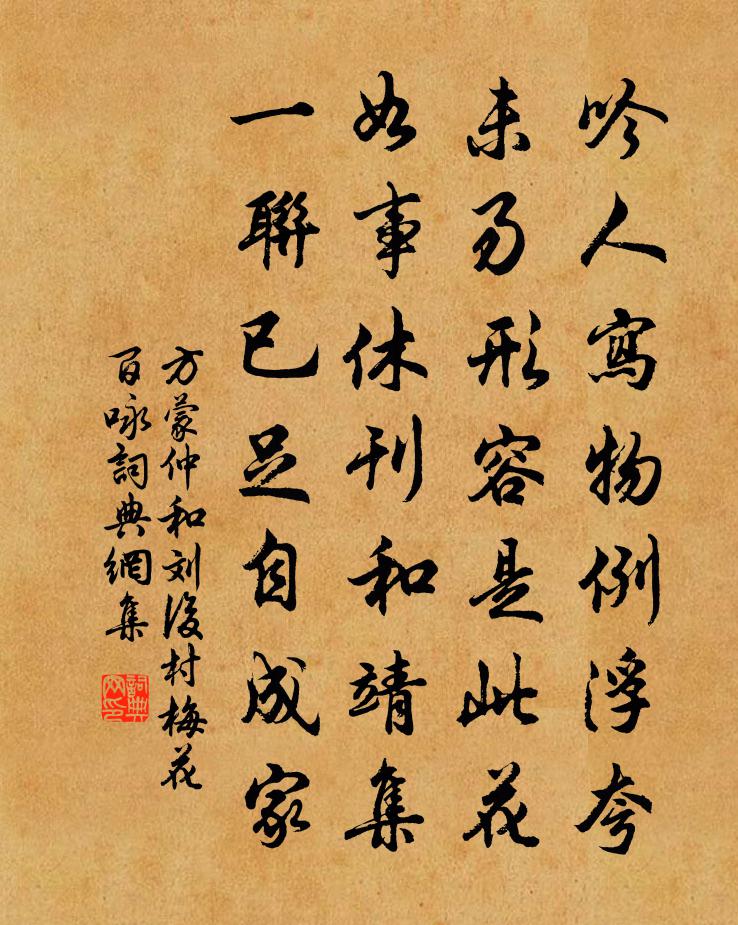 吟人寫物例浮夸
未易形容是此花
如事休刊和靖集
一聯已足自成家
方蒙仲和刘後村梅花
百咏詞典網集
詞典網印